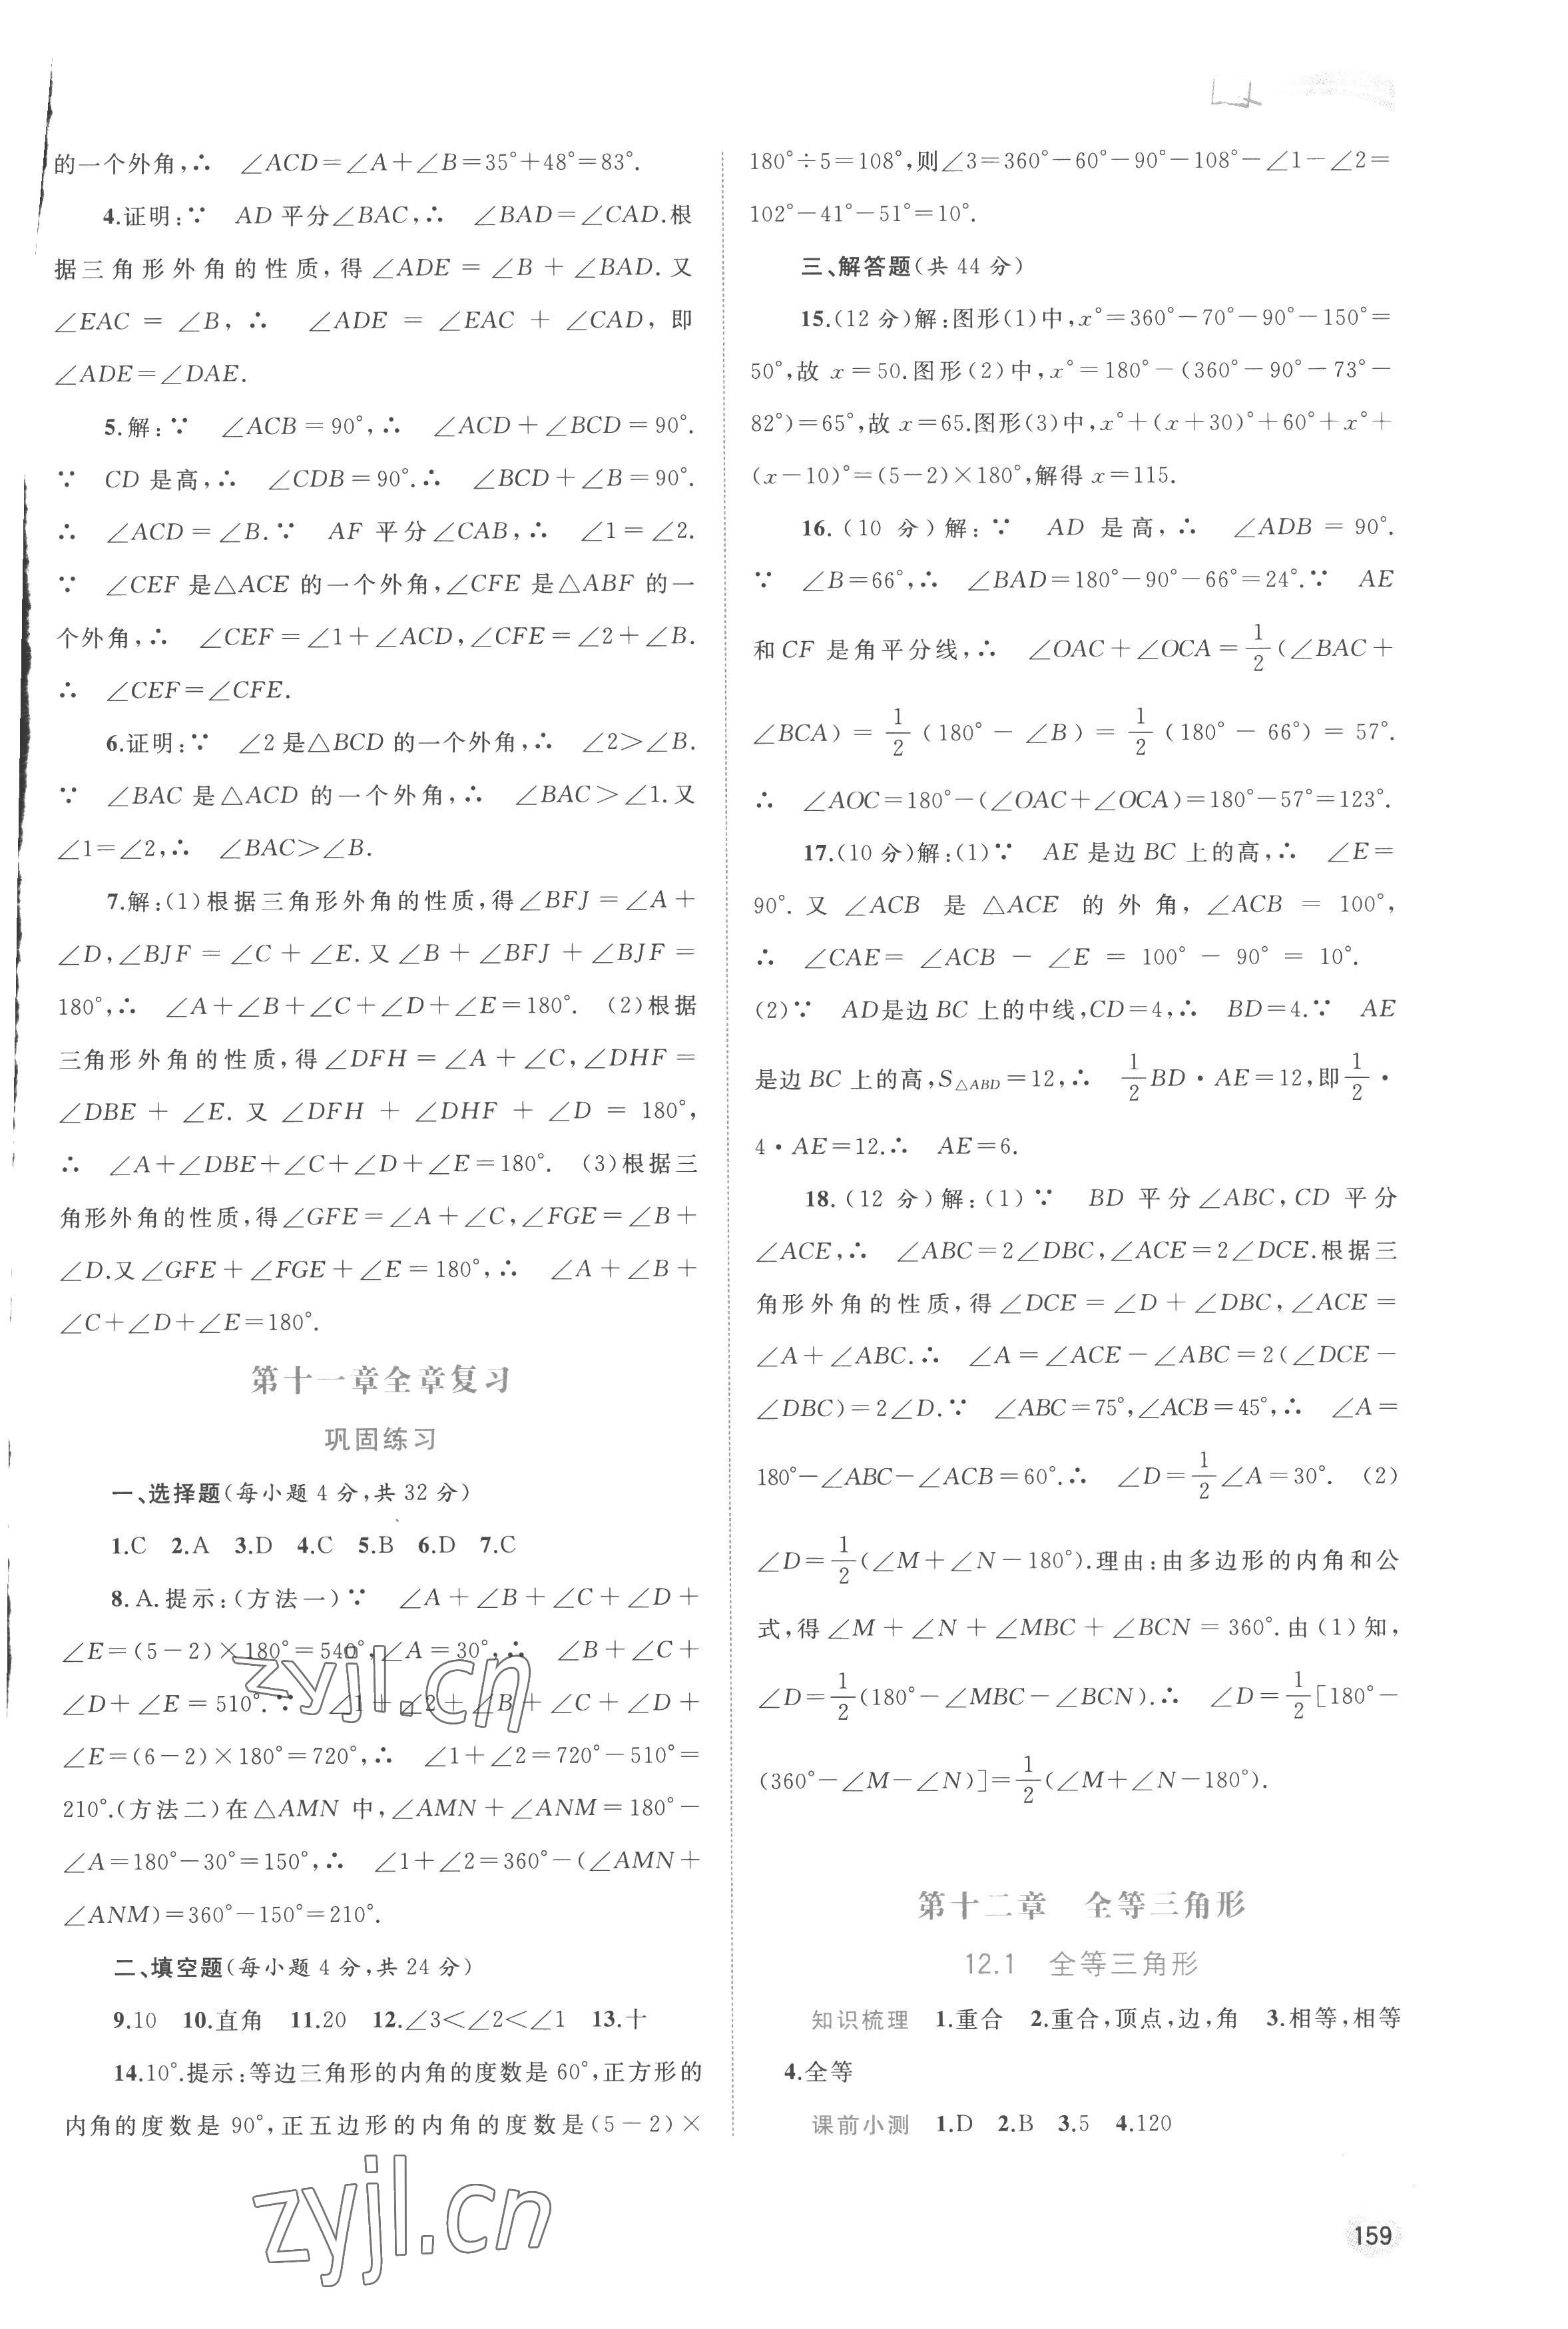 的一个外角,∴ ∠ACD=∠A+∠B=35°+48°=83°.
4.证明:∵ AD平分∠BAC,∴ ∠BAD=∠CAD.根
据三角形外角的性质,得∠ADE=∠B+∠BAD.又
∠EAC=∠B,∴ ∠ADE=∠EAC+∠CAD,即
∠ADE=∠DAE.
5.解:∵ ∠ACB=90°,∴ ∠ACD+∠BCD=90°.
∵ CD是高,∴ ∠CDB=90°.∴ ∠BCD+∠B=90°.
∴ ∠ACD=∠B.∵ AF平分∠CAB,∴ ∠1=∠2.
∵ ∠CEF是△ACE的一个外角,∠CFE是△ABF的一
个外角,∴ ∠CEF=∠1+∠ACD,∠CFE=∠2+∠B.
∴ ∠CEF=∠CFE.
6.证明:∵ ∠2是△BCD的一个外角,∴ ∠2>∠B.
∵ ∠BAC是△ACD的一个外角,∴ ∠BAC>∠1.又
∠1=∠2,∴ ∠BAC>∠B.
7.解:(1)根据三角形外角的性质,得∠BFJ=∠A+
∠D,∠BJF=∠C+∠E.又∠B+∠BFJ+∠BJF=
180°,∴ ∠A+∠B+∠C+∠D+∠E=180°. (2)根据
三角形外角的性质,得∠DFH=∠A+∠C,∠DHF=
∠DBE+∠E.又∠DFH+∠DHF+∠D=180°,
∴ ∠A+∠DBE+∠C+∠D+∠E=180°. (3)根据三
角形外角的性质,得∠GFE=∠A+∠C,∠FGE=∠B+
∠D.又∠GFE+∠FGE+∠E=180°,∴ ∠A+∠B+
∠C+∠D+∠E=180°.
第十一章全章复习
巩固练习
一、选择题(每小题4分,共32分)
1.C 2.A 3.D 4.C 5.B 6.D 7.C
8.A.提示:(方法一)∵ ∠A+∠B+∠C+∠D+
∠E=(5-2)×180°=540°,∠A=30°,∴ ∠B+∠C+
∠D+∠E=510°.∵ ∠1+∠2+∠B+∠C+∠D+
∠E=(6-2)×180°=720°,∴ ∠1+∠2=720°-510°=
210°.(方法二)在△AMN中,∠AMN+∠ANM=180°-
∠A=180°-30°=150°,∴ ∠1+∠2=360°-(∠AMN+
∠ANM)=360°-150°=210°.
二、填空题(每小题4分,共24分)
9.10 10.直角 11.20 12.∠3<∠2<∠1 13.十
14.10°.提示:等边三角形的内角的度数是60°,正方形的
内角的度数是90°,正五边形的内角的度数是(5-2)×
180°÷5=108°,则∠3=360°-60°-90°-108°-∠1-∠2=
102°-41°-51°=10°.
三、解答题(共44分)
15.(12分)解:图形(1)中,x°=360°-70°-90°-150°=
50°,故x=50.图形(2)中,x°=180°-(360°-90°-73°-
82°)=65°,故x=65.图形(3)中,x°+(x+30)°+60°+x°+
(x-10)°=(5-2)×180°,解得x=115.
16.(10分)解:∵ AD是高,∴ ∠ADB=90°.
∵ ∠B=66°,∴ ∠BAD=180°-90°-66°=24°.∵ AE
和CF是角平分线,∴ ∠OAC+∠OCA=1/2(∠BAC+
∠BCA)=1/2(180°-∠B)=1/2(180°-66°)=57°.
∴ ∠AOC=180°-(∠OAC+∠OCA)=180°-57°=123°.
17.(10分)解:(1)∵ AE是边BC上的高,∴ ∠E=
90°.又∠ACB是△ACE的外角,∠ACB=100°,
∴ ∠CAE=∠ACB-∠E=100°-90°=10°.
(2)∵ AD是边BC上的中线,CD=4,∴ BD=4.∵ AE
是边BC上的高,S△ABD=12,∴ 1/2BD·AE=12,即1/2·
4·AE=12.∴ AE=6.
18.(12分)解:(1)∵ BD平分∠ABC,CD平分
∠ACE,∴ ∠ABC=2∠DBC,∠ACE=2∠DCE.根据三
角形外角的性质,得∠DCE=∠D+∠DBC,∠ACE=
∠A+∠ABC.∴ ∠A=∠ACE-∠ABC=2(∠DCE-
∠DBC)=2∠D.∵ ∠ABC=75°,∠ACB=45°,∴ ∠A=
180°-∠ABC-∠ACB=60°.∴ ∠D=1/2∠A=30°. (2)
∠D=1/2(∠M+∠N-180°).理由:由多边形的内角和公
式,得∠M+∠N+∠MBC+∠BCN=360°.由(1)知,
∠D=1/2(180°-∠MBC-∠BCN).∴ ∠D=1/2[180°-
(360°-∠M-∠N)]=1/2(∠M+∠N-180°).
第十二章 全等三角形
12.1 全等三角形
知识梳理 1.重合 2.重合,顶点,边,角 3.相等,相等
4.全等
课前小测 1.D 2.B 3.5 4.120
zyjl.cn
zyjl.cn
159